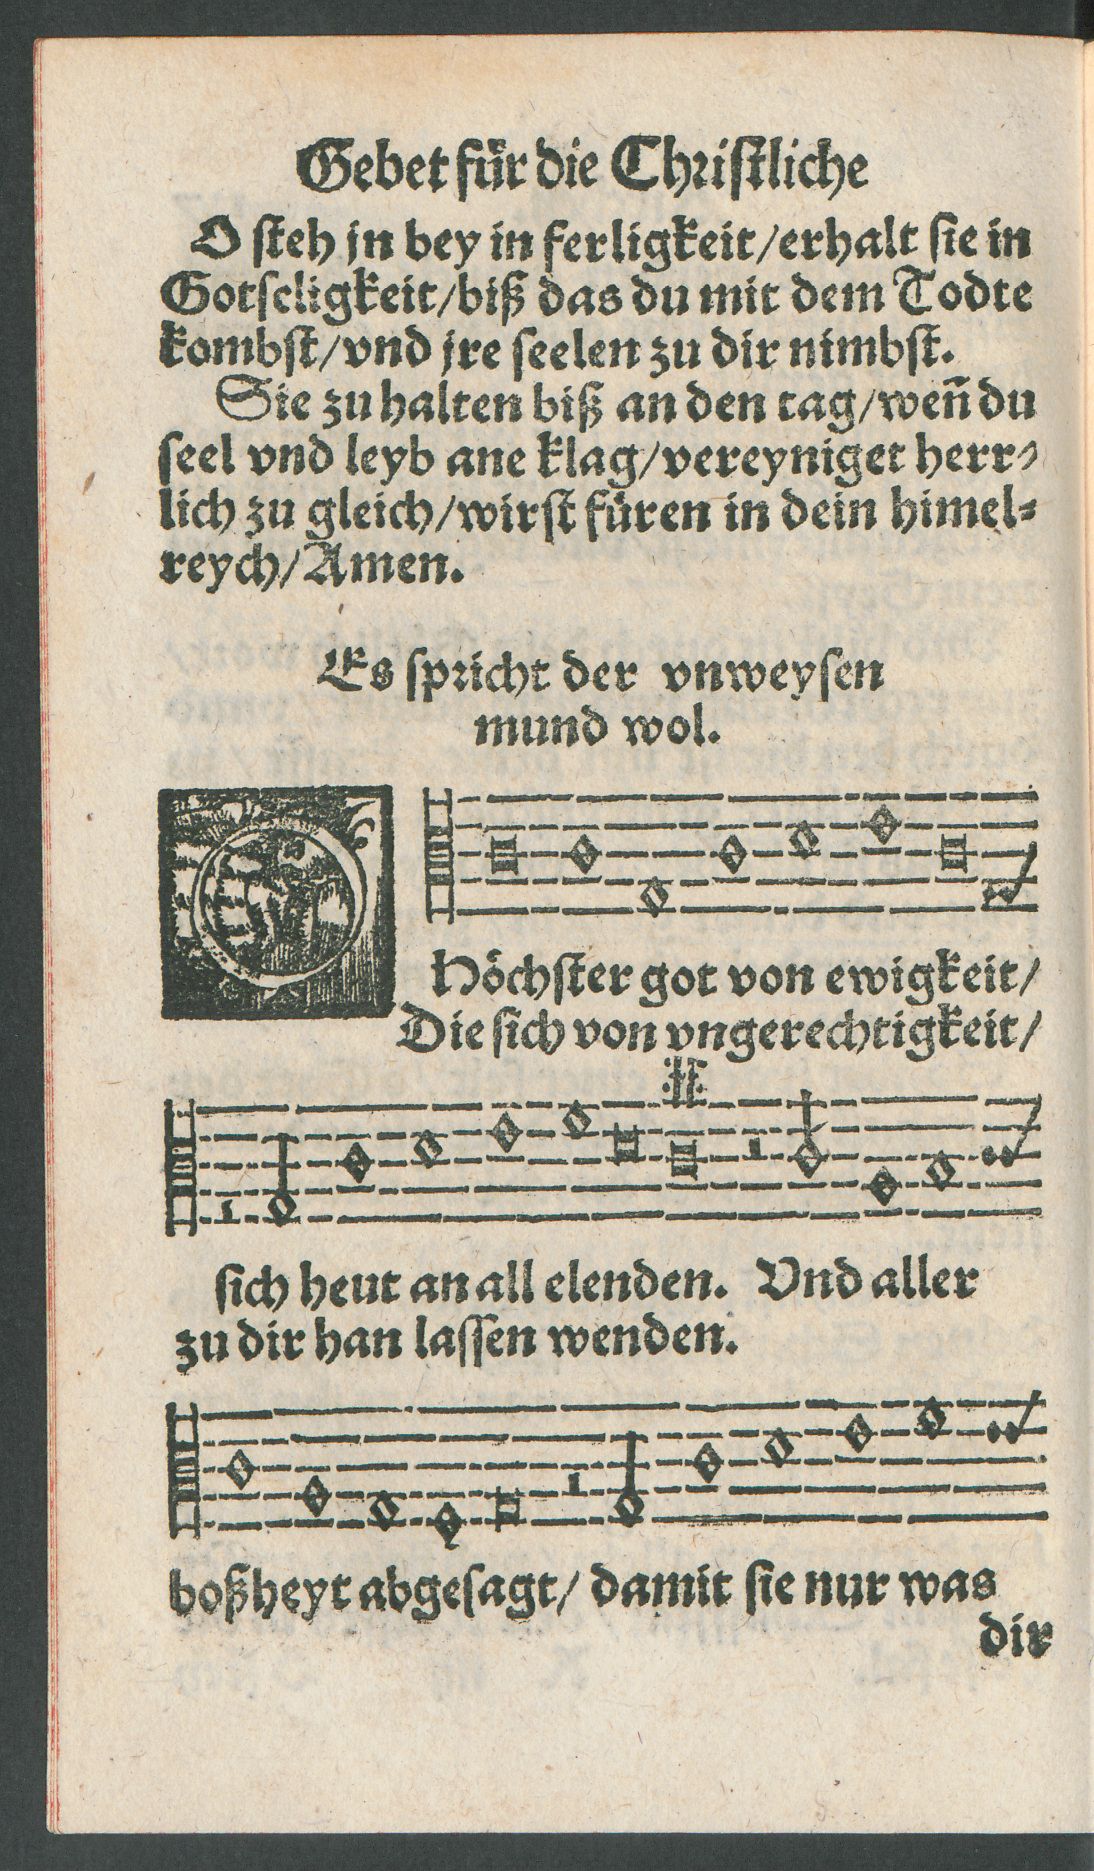 Gebet für die Christliche
O steh jn bey in ferligkeit/erhalt sie in
Gotseligkeit/biß das du mit dem Todte
kombst/vnd jre seelen zu dir nimbst.
Sie zu halten biß an den tag/wen̄ du
seel vnd leyb ane klag/vereyniget herr⸗
lich zu gleich/wirst füren in dein himel⸗
reych/Amen.
Es spricht der vnweysen
mund wol.
O
Höchster got von ewigkeit/
Die sich von vngerechtigkeit/
sich heut an all elenden. Vnd aller
zu dir han lassen wenden.
boßheyt abgesagt/ damit sie nur was
dir